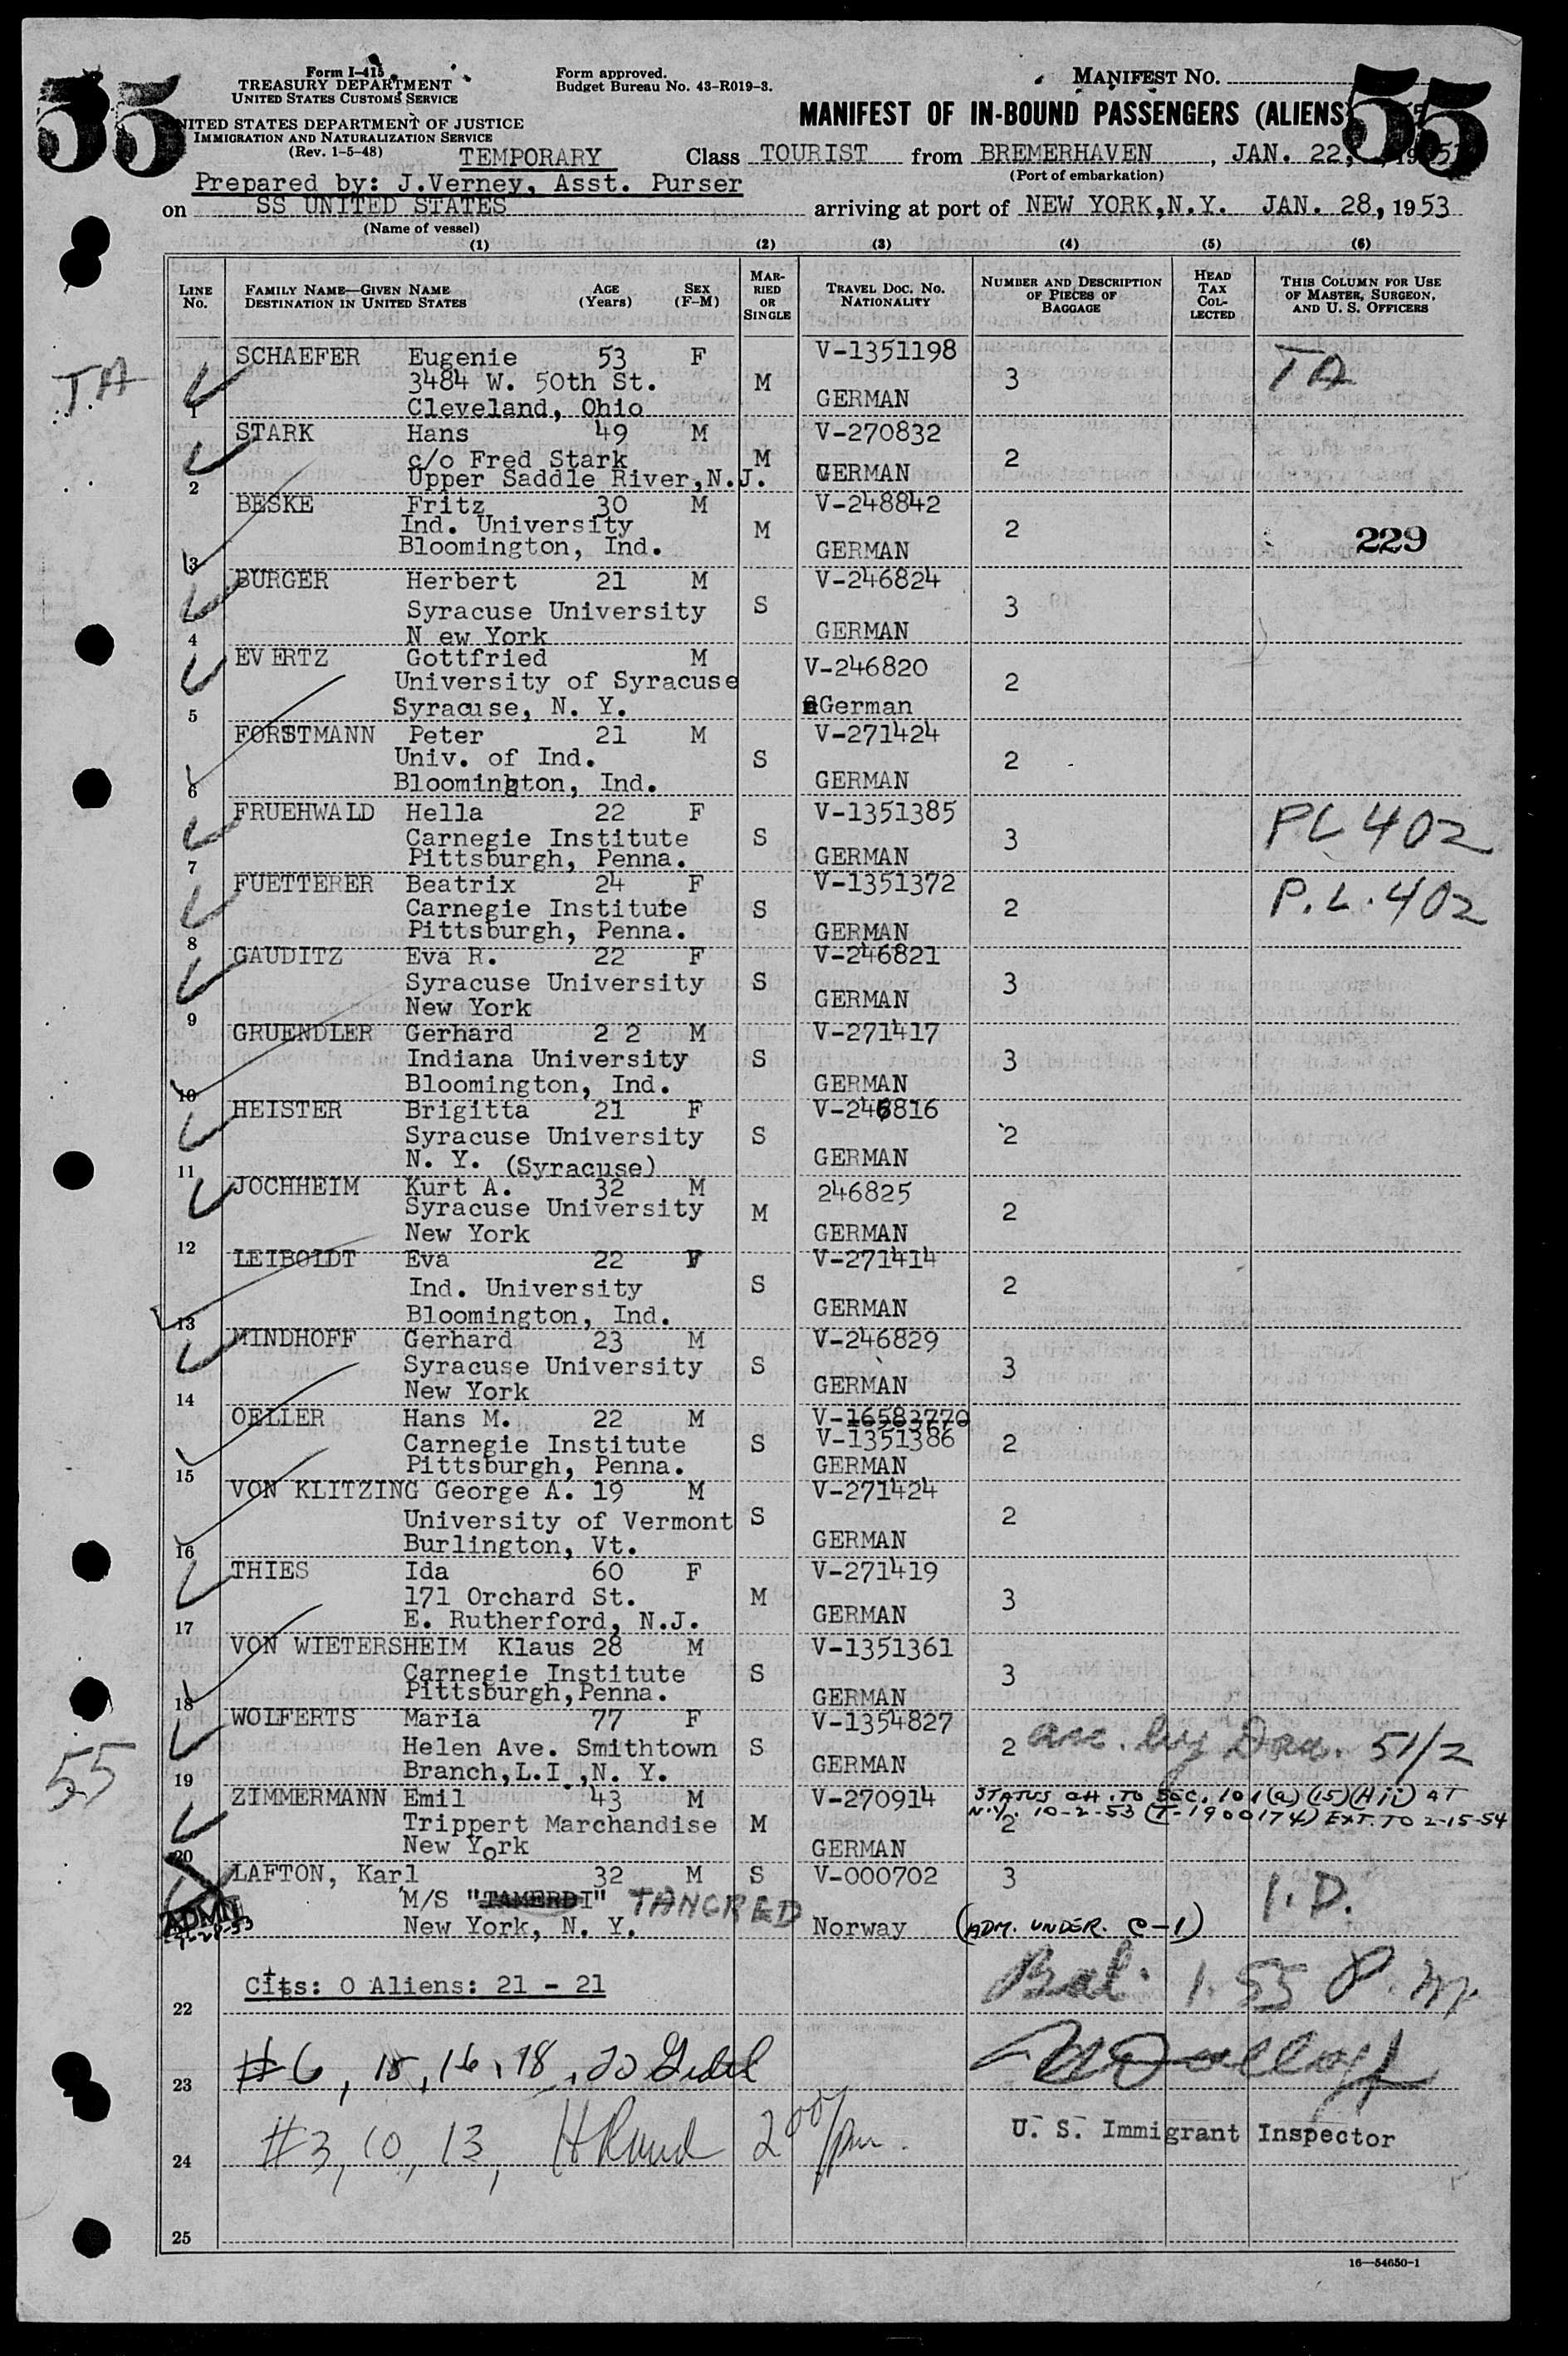 55
Form I-415
TREASURY DEPARTMENT
UNITED STATES CUSTOMS SERVICE
UNITED STATES DEPARTMENT OF JUSTICE
IMMIGRATION AND NATURALIZATION SERVICE
(Rev. 1-5-48)
Form approved.
Budget Bureau No. 43-R019-3.
MANIFEST NO.
55
MANIFEST OF IN-BOUND PASSENGERS (ALIENS)
TEMPORARY Class TOURIST from BREMERHAVEN, JAN. 22, 1953
(Port of embarkation)
Prepared by: J.Verney, Asst. Purser
on SS UNITED STATES arriving at port of NEW YORK,N.Y. JAN. 28, 1953
(Name of vessel)
(1) (2) (3) (4) (5) (6)
LINE No. FAMILY NAME—GIVEN NAME DESTINATION IN UNITED STATES AGE (Years) SEX (F-M) MARRIED OR SINGLE TRAVEL DOC. NO. NATIONALITY NUMBER AND DESCRIPTION OF PIECES OF BAGGAGE HEAD TAX COLLECTED THIS COLUMN FOR USE OF MASTER, SURGEON, AND U. S. OFFICERS
TA SCHAEFER Eugenie 53 F V-1351198 TA
3484 W. 50th St. M 3
1 Cleveland, Ohio GERMAN
STARK Hans 49 M V-270832
c/o Fred Stark M 2
2 Upper Saddle River,N.J. GERMAN
BESKE Fritz 30 M V-248842
Ind. University M 2 229
3 Bloomington, Ind. GERMAN
BURGER Herbert 21 M V-246824
Syracuse University S 3
4 N ew York GERMAN
EVERTZ Gottfried M V-246820
University of Syracuse 2
5 Syracuse, N. Y. German
FORSTMANN Peter 21 M V-271424
Univ. of Ind. S 2
6 Bloomington, Ind. GERMAN
FRUEHWALD Hella 22 F V-1351385 PL 402
Carnegie Institute S 3
7 Pittsburgh, Penna. GERMAN
FUETTERER Beatrix 24 F V-1351372 P.L. 402
Carnegie Institute S 2
8 Pittsburgh, Penna. GERMAN
GAUDITZ Eva R. 22 F V-246821
Syracuse University S 3
9 New York GERMAN
GRUENDLER Gerhard 2 2 M V-271417
Indiana University S 3
10 Bloomington, Ind. GERMAN
HEISTER Brigitta 21 F V-246816
Syracuse University S 2
11 N. Y. (Syracuse) GERMAN
JOCHHEIM Kurt A. 32 M 246825
Syracuse University M 2
12 New York GERMAN
LEIBOLDT Eva 22 F V-271414
Ind. University S 2
13 Bloomington, Ind. GERMAN
MINDHOFF Gerhard 23 M V-246829
Syracuse University S 3
14 New York GERMAN
OELLER Hans M. 22 M V-16583770
Carnegie Institute S V-1351386 2
15 Pittsburgh, Penna. GERMAN
VON KLITZING George A. 19 M V-271424
University of Vermont S 2
16 Burlington, Vt. GERMAN
THIES Ida 60 F V-271419
171 Orchard St. M 3
17 E. Rutherford, N.J. GERMAN
VON WIETERSHEIM Klaus 28 M V-1351361
Carnegie Institute S 3
18 Pittsburgh,Penna. GERMAN
WOLFERTS Maria 77 F V-1354827
55 Helen Ave. Smithtown S 2 acc. by Dau. 51/2
19 Branch,L.I.,N. Y. GERMAN
ZIMMERMANN Emil 43 M V-270914 STATUS CH. TO SEC. 101(a)(15)(Hii) AT
Trippert Marchandise M 2 N.Y. 10-2-53 (T-1900174) EXT. TO 2-15-54
20 New York GERMAN
LAFTON, Karl 32 M S V-000702 3 I.D.
M/S "TAMERDI" TANCRED
ADMN New York, N. Y. Norway (ADM. UNDER. C-1)
Cits: 0 Aliens: 21 - 21 Bal. 1.55 P.M.
22
23 #6, 15, 16, 18, 20
24 #3, 10, 13, 2 00/pm.
U. S. Immigrant Inspector
25
16—54650-1